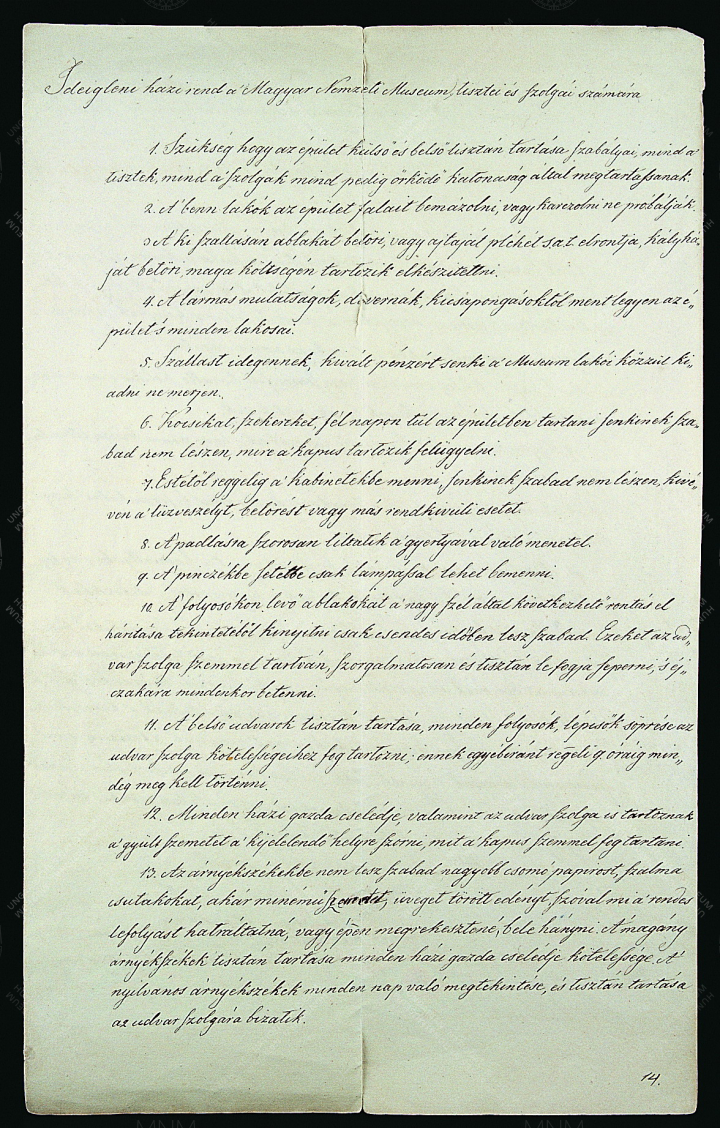 Ideigleni házi rend a' Magyar Nemzeti Museum, tisztei és szolgái számára
1. Szükség hogy az épület külső és belső tisztán tartása szabályai, mind a'
tisztek, mind a' szolgák mind pedig őrködő katonaság által megtartassanak.
2. A' benn lakók az épület falait bemázolni, vagy karczolni ne probálják.
3 A ki szállásán ablakát betöri, vagy ajtaját pléhét s.a.t. elrontja, kályhá„
ját betöri, maga költségén tartozik elkészítettni.
4. A lármás mulatságok, divernák, kicsapongásoktól ment legyen az é„
pület 's minden lakosai.
5. Szállást idegennek, kivált pénzért senki a' Museum lakói közzül ki„
adni ne merjen.
6. Kocsikat, szekereket, fél napon túl az épületben tartani senkinek sza„
bad nem lészen, mire a' kapus tartozik felügyelni.
7. Estétől reggelig a' kabinétekbe menni, senkinek szabad nem lészen, kivé„
vén a' tűzveszélyt, betörést vagy más rendkivüli esetet.
8. A' padlásra szorosan tiltatik a' gyertyával való menetel.
9. A' pinczékbe setétbe csak lámpással lehet bemenni.
10. A' folyosókon levő ablakokat a' nagy szél által következhető rontás el
hárítása tekintetéből kinyitni csak csendes időben lesz szabad. Ezeket az ud„
var szolga szemmel tartván, szorgalmatosan és tisztán le fogja seperni, 's éj„
czakára mindenkor betenni.
11. A' belső udvarok tisztán tartása, minden folyosók, lépcsők söprése az
udvar szolga kötelességeihez fog tartozni; ennek egyébiránt regeli 9. óráig min„
dég meg kell történni.
12. Minden házi gazda cselédje, valamint az udvar szolga is tartoznak
a' gyült szemetet a' kijelelendő helyre szórni, mit a' kapus szemmel fog tartani.
13. Az árnyékszékekbe nem lesz szabad nagyobb csomó papirost, szalma
csutakokat, akár minémű szemetet, üveget törött edényt szóval mi a' rendes
lefolyást hátráltatná, vagy épen megrekesztené, bele hányni. A' magány
árnyékszékek tisztán tartása minden házi gazda cselédje kötelessége. A'
nyilvános árnyékszékek minden nap való megtekintése, és tisztán tartása
az udvar szolgára bizatik.
14.